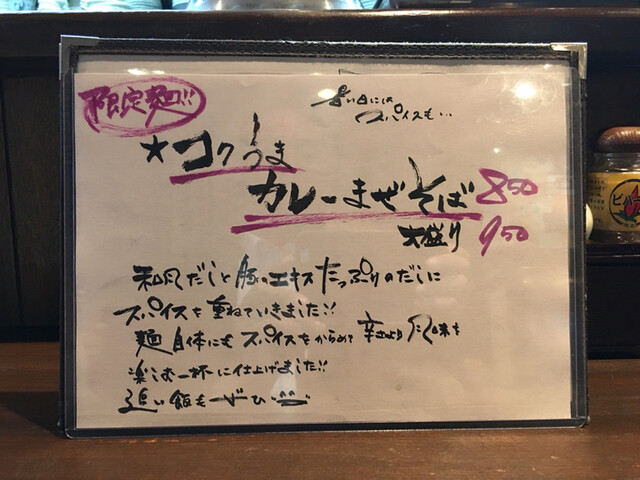 限定麺!!
暑い日には
スパイスも…
★コクうま
カレーまぜそば 850
大盛り 950
和風だしと豚のエキスたっぷりのだしに
スパイスを重ねていきました!!
麺自体にもスパイスをからめて辛さより風味を
楽しむ一杯に仕上げました!!
追い飯もぜひ